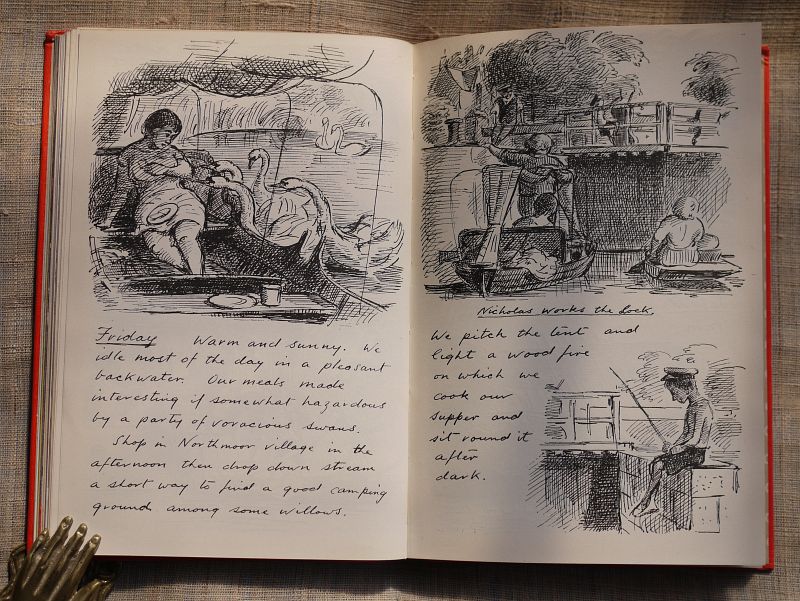 Friday Warm and sunny. We
idle most of the day in a pleasant
backwater. Our meals made
interesting if somewhat hazardous
by a party of voracious swans.
Shop in Northmoor village in the
afternoon then drop down stream
a short way to find a good camping
ground among some willows.
Nicholas works the Lock.
We pitch the tent and
light a wood fire
on which we
cook our
supper and
sit round it
after
dark.